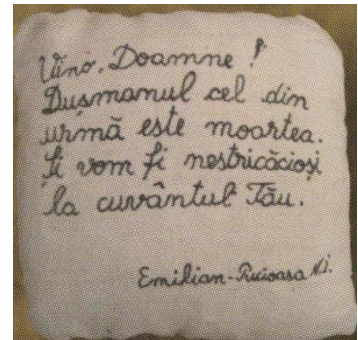 Vino, Doamne!
Dușmanul cel din
urmă este moartea.
Și vom fi nestricăcioși
la cuvântul Tău.
Emilian-Rucioasa